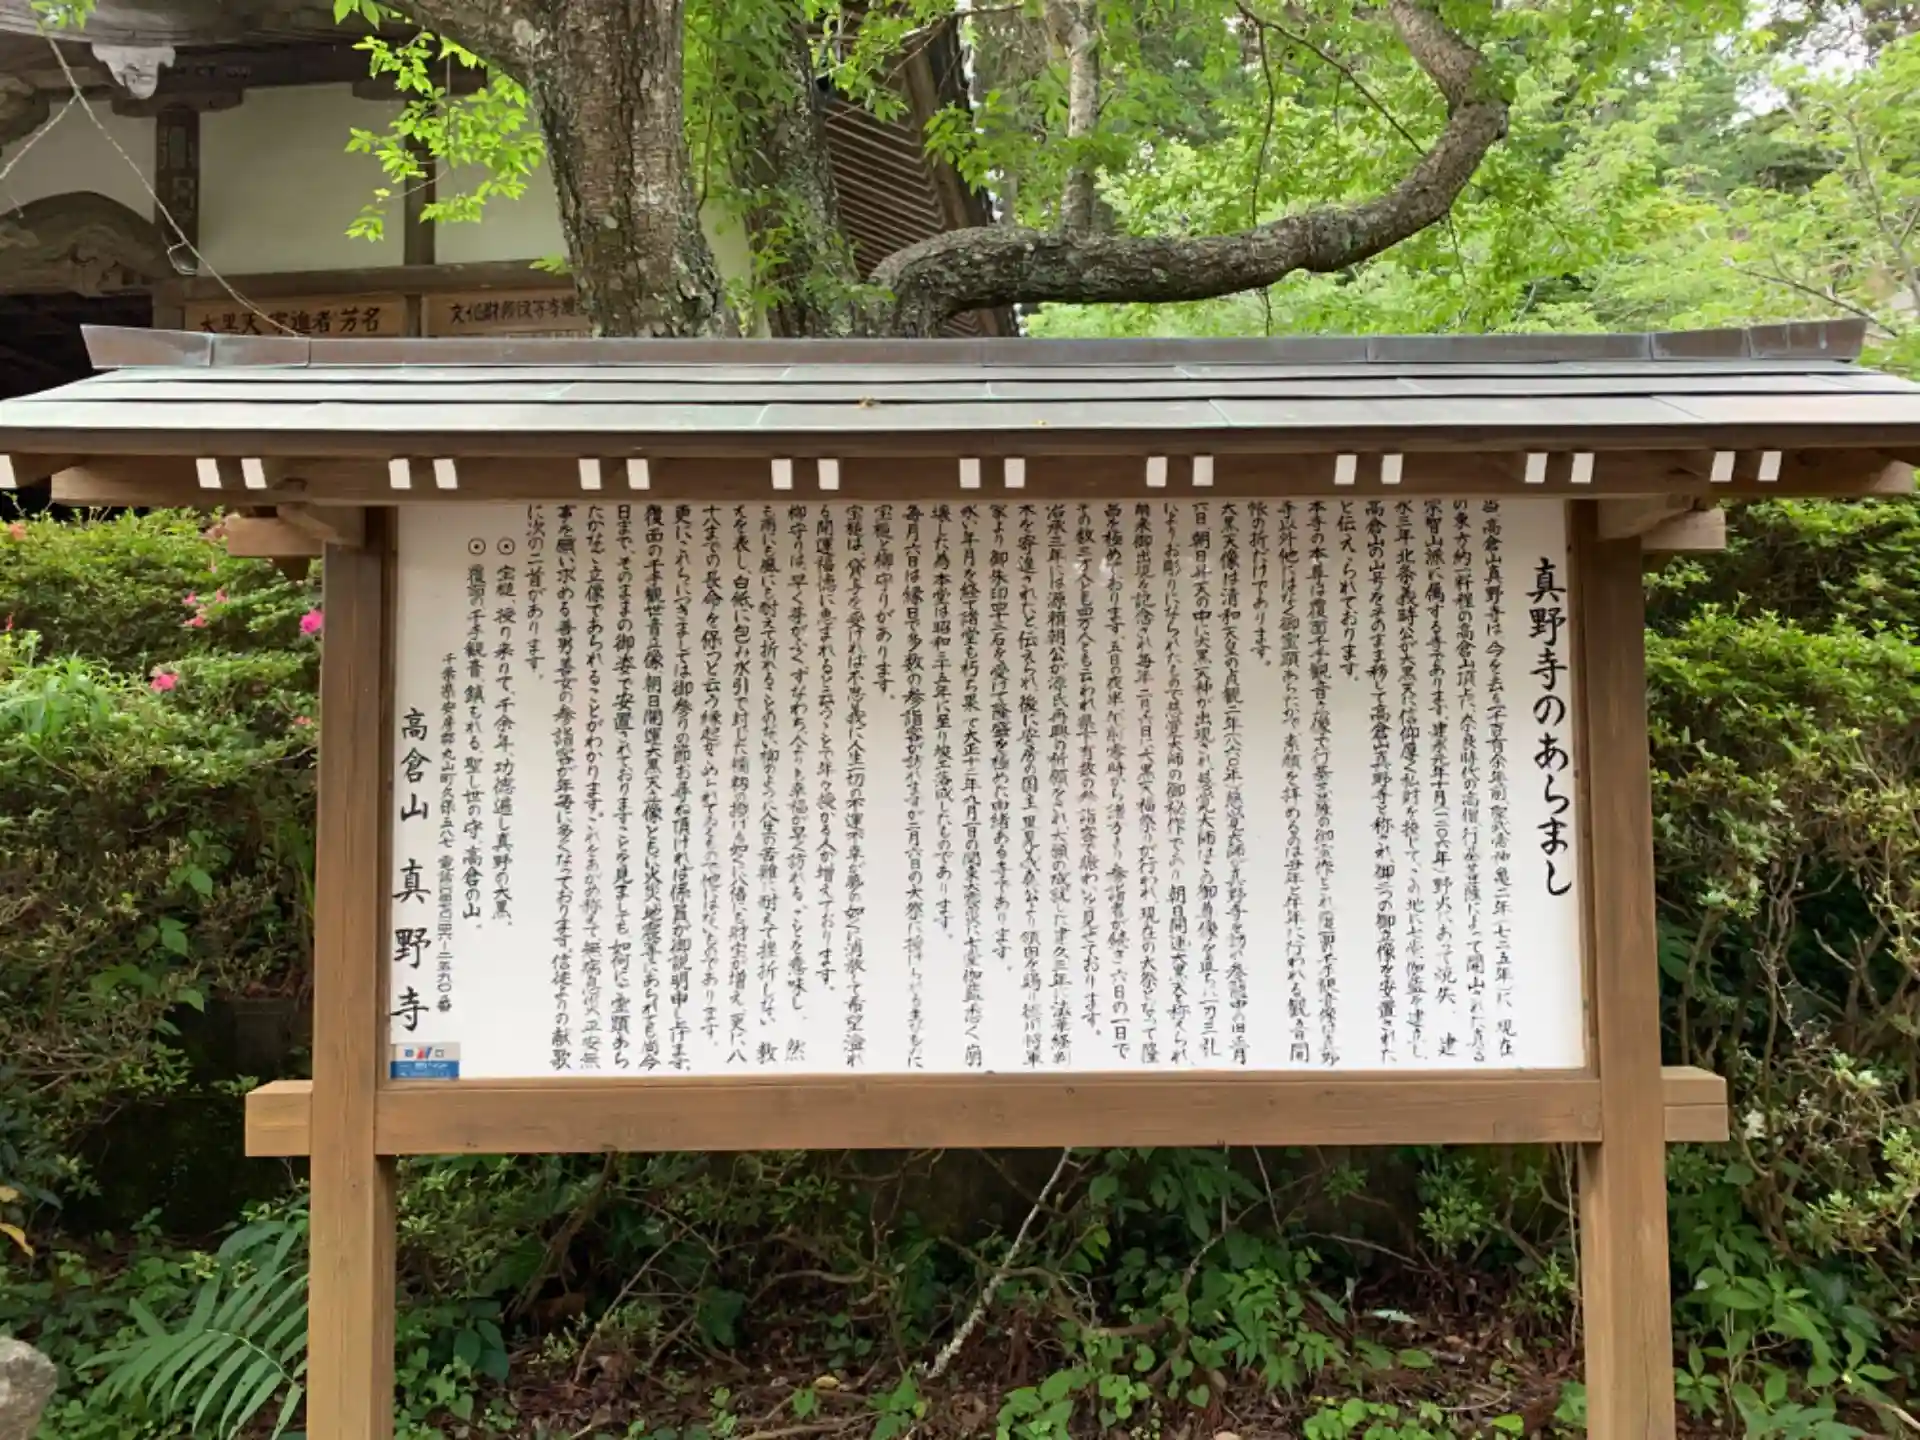 真野寺のあらまし
高倉山真野寺は今を去る千二百有余年前聖武帝神亀二年(七二五年)に、現在
の東方約二軒程の高倉山頂に奈良時代の高僧行基菩薩によって開山された真言
宗智山派に属する寺であります。建永元年十月(一二〇六年)野火にあって焼失、建
永三年北条義時公が大黒天に信仰厚く私財を投じてこの地に七堂伽藍を建立し、
高倉山の山号をそのまま移して高倉山真野寺と称され御二つの御立像を安置された
と伝えられております。
本寺の本尊は覆面千手観音の像で行基菩薩の御字作とされ覆面千手観音像は真野
寺以外他にはなく御霊顕あらたかで素顔を拝めるのは丑年と午年に行われる観音開
帳の折だけであります。
大黒天像は清和天皇の貞観二年(八六〇年)慈覚大師が真野寺を訪れ参籠中の旧正月
六日朝日昇天の中に大黒天神が出現され慈覚大師はこの御尊像を直ちに一刀三礼
によりお彫りになられたもので慈覚大師の御秘作であり朝日開運大黒天と称えられ
爾来御出現を記念され毎年二月六日に大黒天福祭りが行われ、現在の大祭となって隆
昌を極めております。五日の夜半、午前零時から湧き参詣者が続き六日の一日で
その数三万人とも四万人とも云われ県下有数の参詣客で賑わいを見せております。
治承三年には源頼朝公が源氏再興の祈願をされ大願の成就した建久三年に法華経料
木を寄進されたと伝えられ後に安房の国主里見義康公より領田を賜り徳川将軍
家より御朱印四十三石を受けて隆盛を極めた由緒ある寺であります。
永い年月を経て諸堂も朽ち果て大正十二年九月一日の関東大震災に七堂伽藍悉く崩
壊した為本堂は昭和三十五年に至り竣工落成したものであります。
毎月六日は縁日で多数の参詣客が訪れますが二月六日の大祭に授けられる
宝槌と柳守りがあります。
宝槌は、貸与を受ければ不思議に人生一切の不運不幸が夢の如くに消散して希望溢れ
る開運福徳に恵まれると云うことで年々授かる人が増えております。
柳守りは、早く芽がふくずなわち人よりも幸福が早く訪れることを意味し、然
も雨にも風にも耐えて折れることのない柳のように人生の苦難に耐えて挫折しない教
えを表し、白紙に包み水引で封じた
十八までの長命を保つと云う縁起がこめられておるもので他にはないものであります。
更にこれらにつきましては御参りの節お尋ね頂ければ係員が御説明申し上げます。
覆面の千手観世音立像、朝日開運大黒天立像ともに火災、地震等にあられても尚今
日まで、そのままの御姿で安置されておりますことを見ましても如何に霊顕あら
たかなご立像であられることがわかります。これをあがめ称えて無病息災大正安無
事を願い求める善男善女の参詣客が年毎に多くなっております。信徒よりの献歌
に次の二首があります。
⊙ 宝槌、授り来りて、千余年、功徳遍し真野の大黒、
⊙ 覆面の千手観音、鎮もれる、聖し世の守、高倉の山、
千葉県安房郡丸山町久保五八七
高倉山 真野寺
大黒天 寄進者芳名